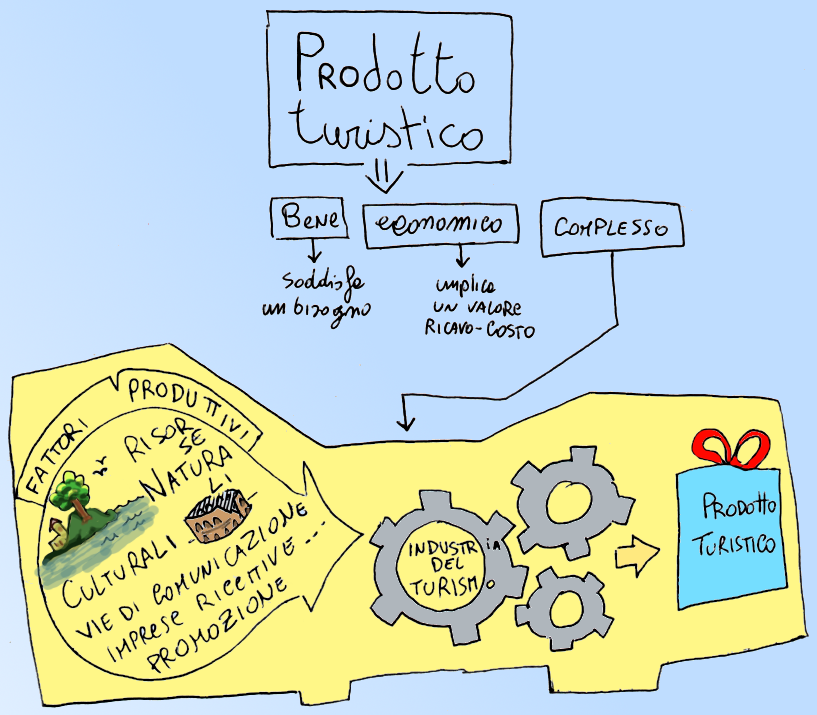 Prodotto
turistico
BENE
economico
COMPLESSO
soddisfa
un bisogno
implica
UN VALORE
RICAVO-COSTO
FATTORI PRODUTTIVI
RISORSE
NATURALI
CULTURALI
VIE DI COMUNICAZIONE
IMPRESE RICETTIVE ...
PROMOZIONE
INDUSTRIA
DEL
TURISMO
PRODOTTO
TURISTICO